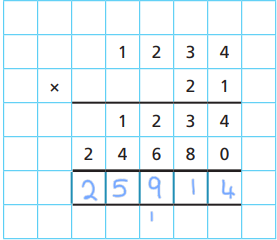 1 2 3 4
× 2 1
1 2 3 4
2 4 6 8 0
2 5 9 1 4
1